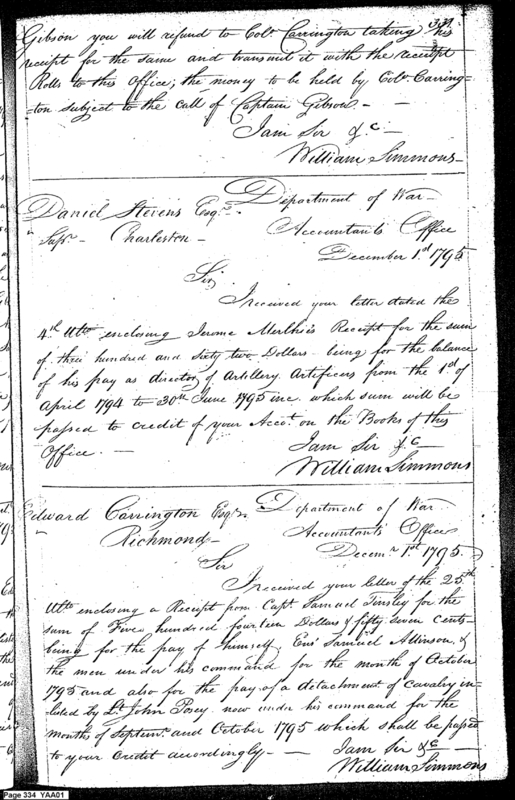 331.
Gibson you will refund to Colo. Carrington taking his
receipt for the same and transmit it with the receipt
Rolls to this Office; the money to be held by Colo. Carring=
=ton subject to the call of Captain Gibson —
I am Sir &c —
William Simmons —
Daniel Stevens Esqr. Department of War
Supr. Charleston — Accountants Office
December 1st 1795
Sir
I received your letter dated the
4th Ulto enclosing Jerome Merthie's Receipt for the sum
of three hundred and sixty two Dollars being for the balance
of his pay as director of Artillery Artificers from the 1st of
April 1794 to 30th June 1795 inc. which sum will be
passed to credit of your Accot. on the Books of this
Office. — I am Sir &c —
William Simmons
Edward Carrington Esqr. Department of War
Richmond — Accountant's Office
Decemr. 1st 1795.
Sir
I received your letter of the 25th
Ulto enclosing a Receipt from Capt. Samuel Tinsley for the
sum of Five hundred fourteen Dollars & fifty seven cents
being for the pay of himself, Ens' Samuel Allinson, &
the men under his command for the month of October
1795 and also for the pay of a detachment of cavalry in=
=listed by Lt John Posey now under his command for the
months of Septemr. and October 1795 which shall be passed
to your credit accordingly — I am Sir &c —
William Simmons
Page 334 YAA01